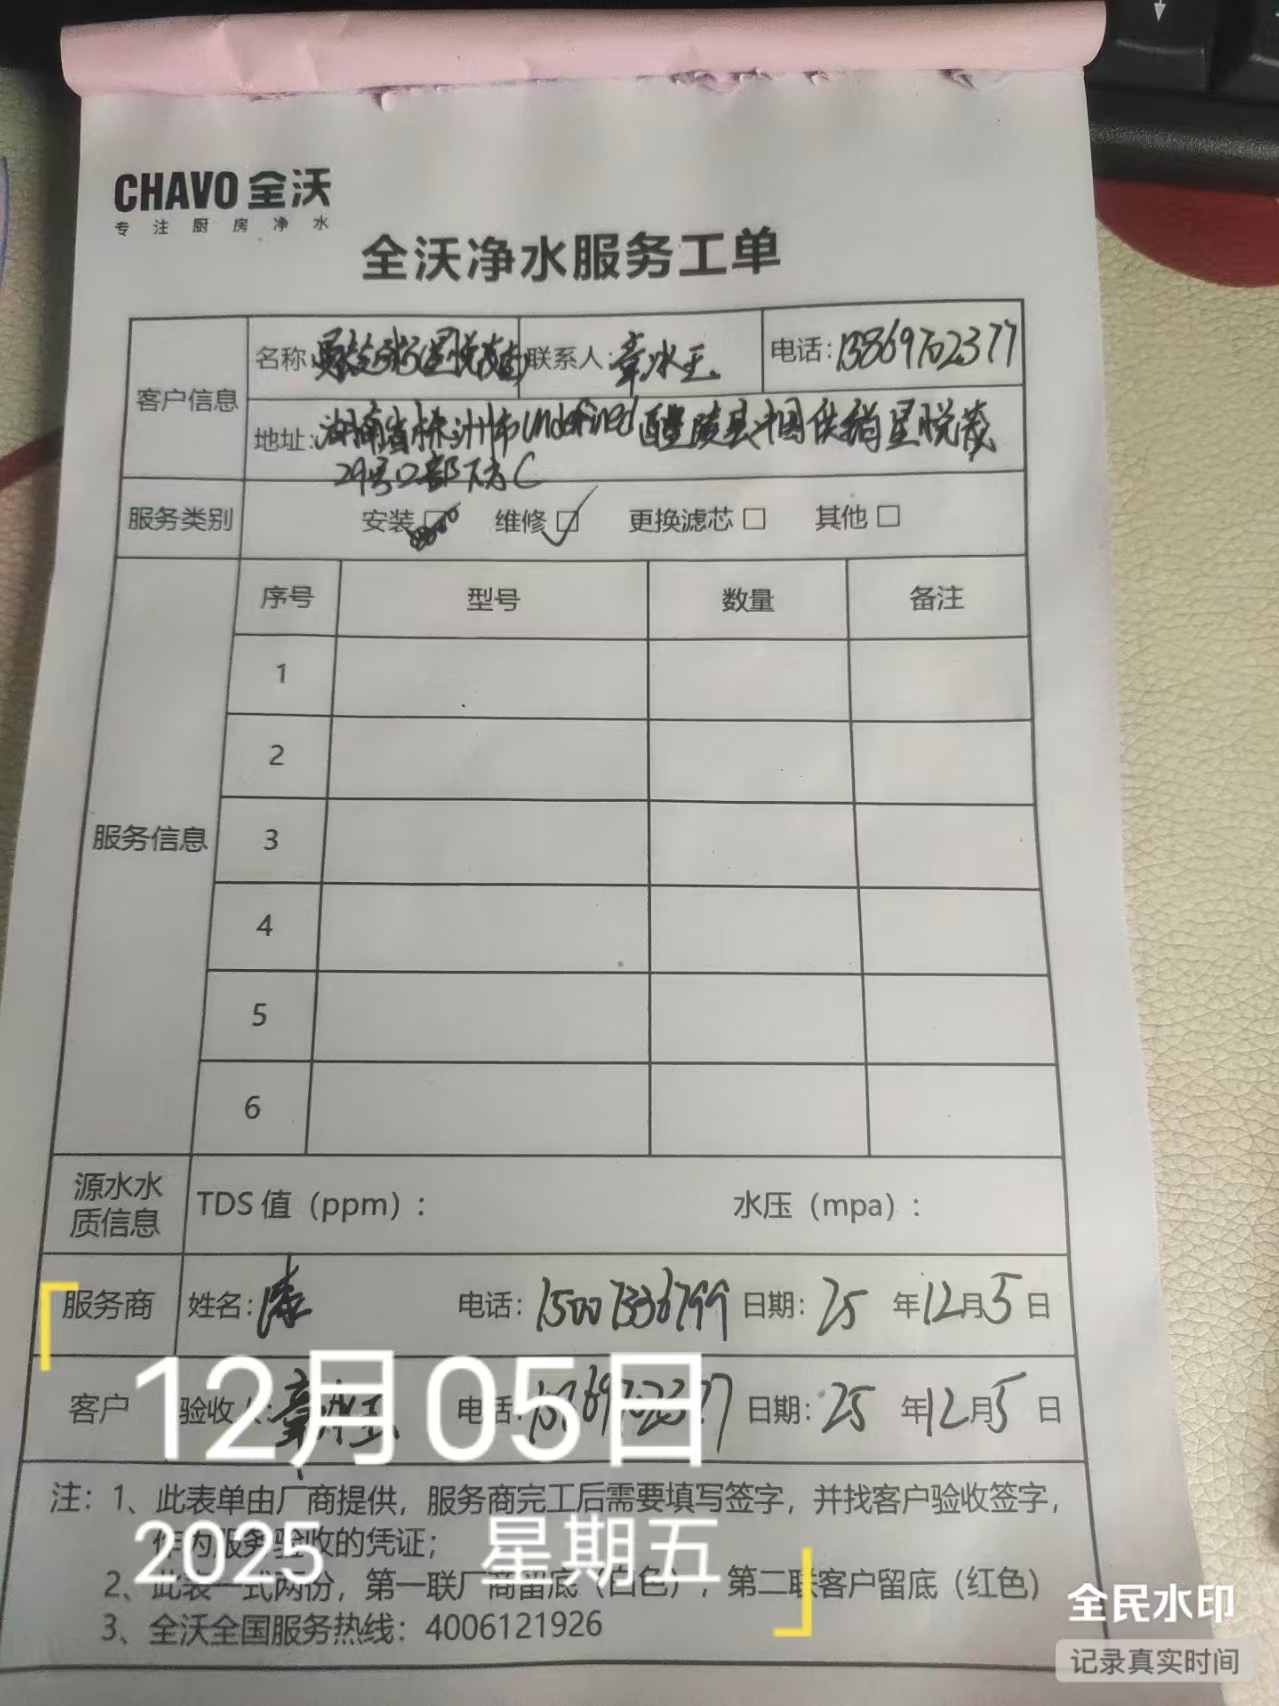 CHAVO 全沃
专注厨房净水
全沃净水服务工单
客户信息
名称: 联系人: 章冰玉 电话: 13869702377
地址: 湖南省株洲市undefined醴陵县中国供销星悦茂
29号口部下方C
服务类别 安装 维修 更换滤芯 其他
服务信息
序号 型号 数量 备注
1
2
3
4
5
6
源水水质信息 TDS 值（ppm）: 水压（mpa）:
服务商 姓名: 漆 电话: 15007336799 日期: 25 年 12 月 5 日
客户 验收人: 章冰玉 电话: 日期: 25 年 12 月 5 日
12月05日
2025 星期五
注: 1、此表单由厂商提供，服务商完工后需要填写签字，并找客户验收签字，
作为服务验收的凭证；
2、此表一式两份，第一联厂商留底（白色），第二联客户留底（红色）
3、全沃全国服务热线: 4006121926
全民水印
记录真实时间